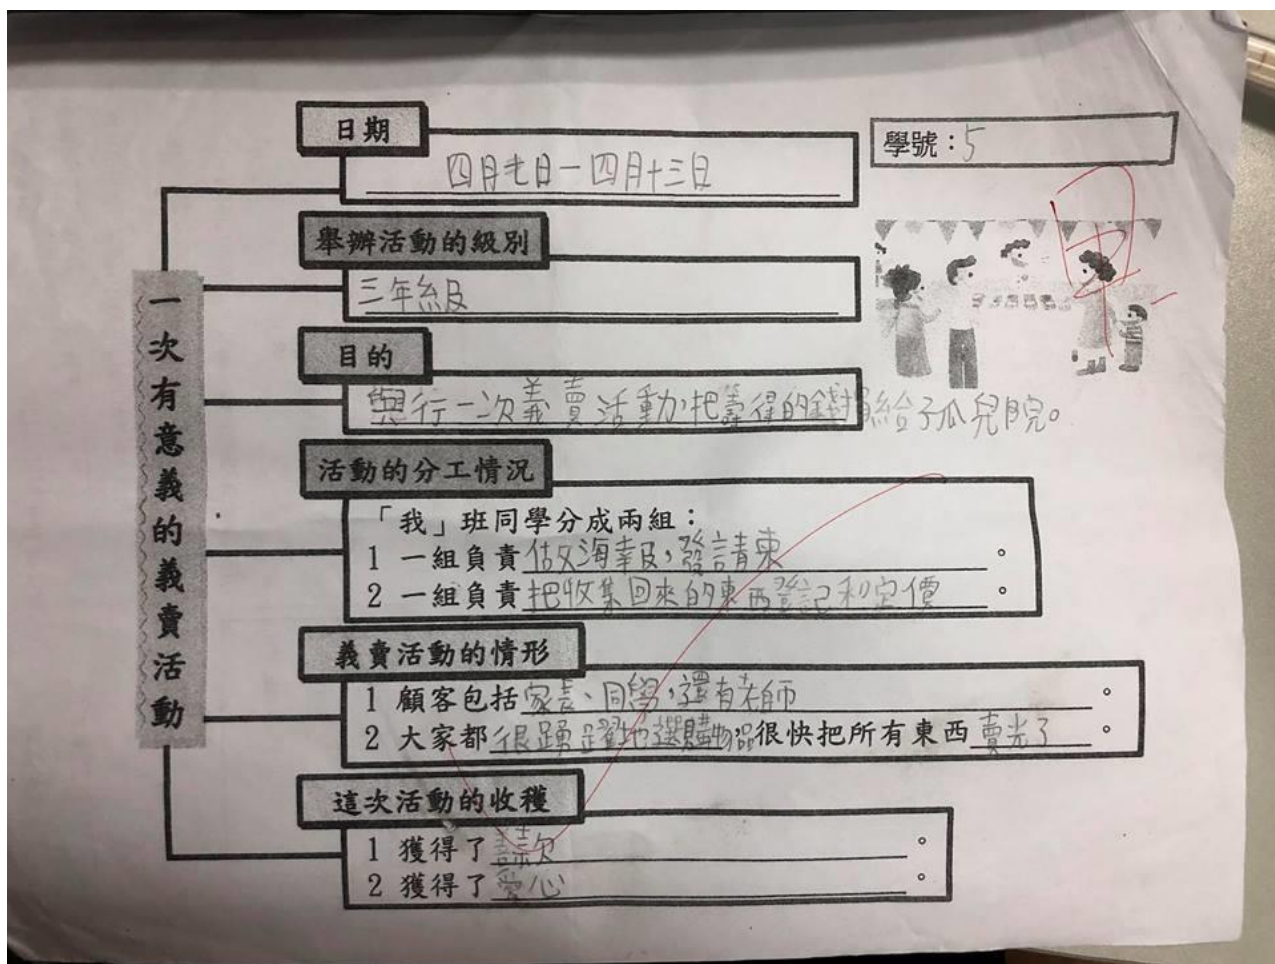 日期
四月七日－四月十三日
學號：5
舉辦活動的級別
三年級
甲
目的
舉行一次義賣活動，把籌得的錢捐給孤兒院。
一次有意義的義賣活動
活動的分工情況
「我」班同學分成兩組：
1 一組負責做海報，發請柬。
2 一組負責把收集回來的東西登記和定價。
義賣活動的情形
1 顧客包括家長、同學，還有老師。
2 大家都很踴躍地選購物品，很快把所有東西賣光了。
這次活動的收穫
1 獲得了善款。
2 獲得了愛心。